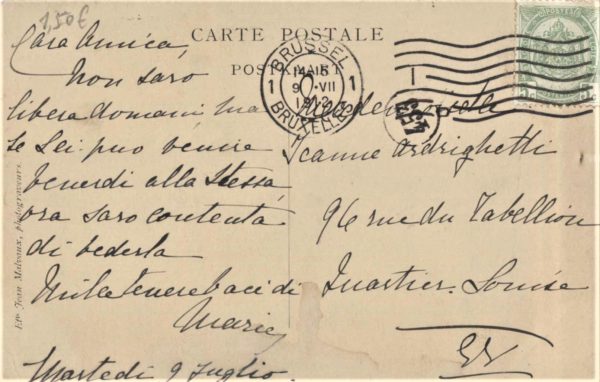 1,50€
CARTE POSTALE
POSTKAART
BRUSSEL
1 1
9 VII
BRUXELLES
Cara Amica,
Non saro
libera domani ma
se Lei puo venire
Venerdi alla stessa
ora saro contenta
di vederla
Mille tenere baci di
Marie
Martedi 9 Luglio
Mademoiselle
Jeanne Ardrighetti
96 rue du Tabellion
Quartier Louise
EV
Etts Jean Malvaux, photograveurs.